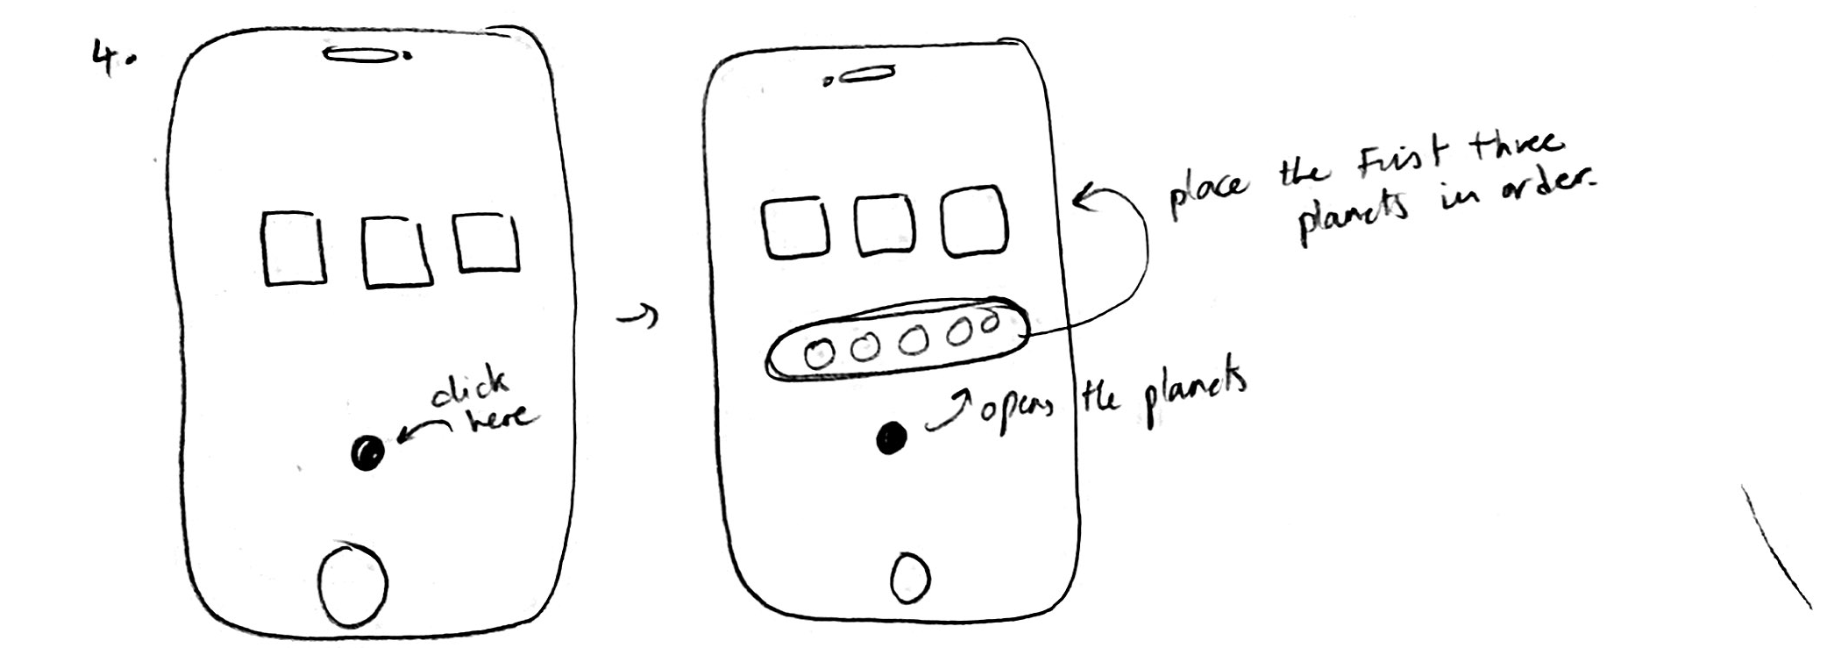 4.
click
here
place the First three
planets in order.
opens the planets